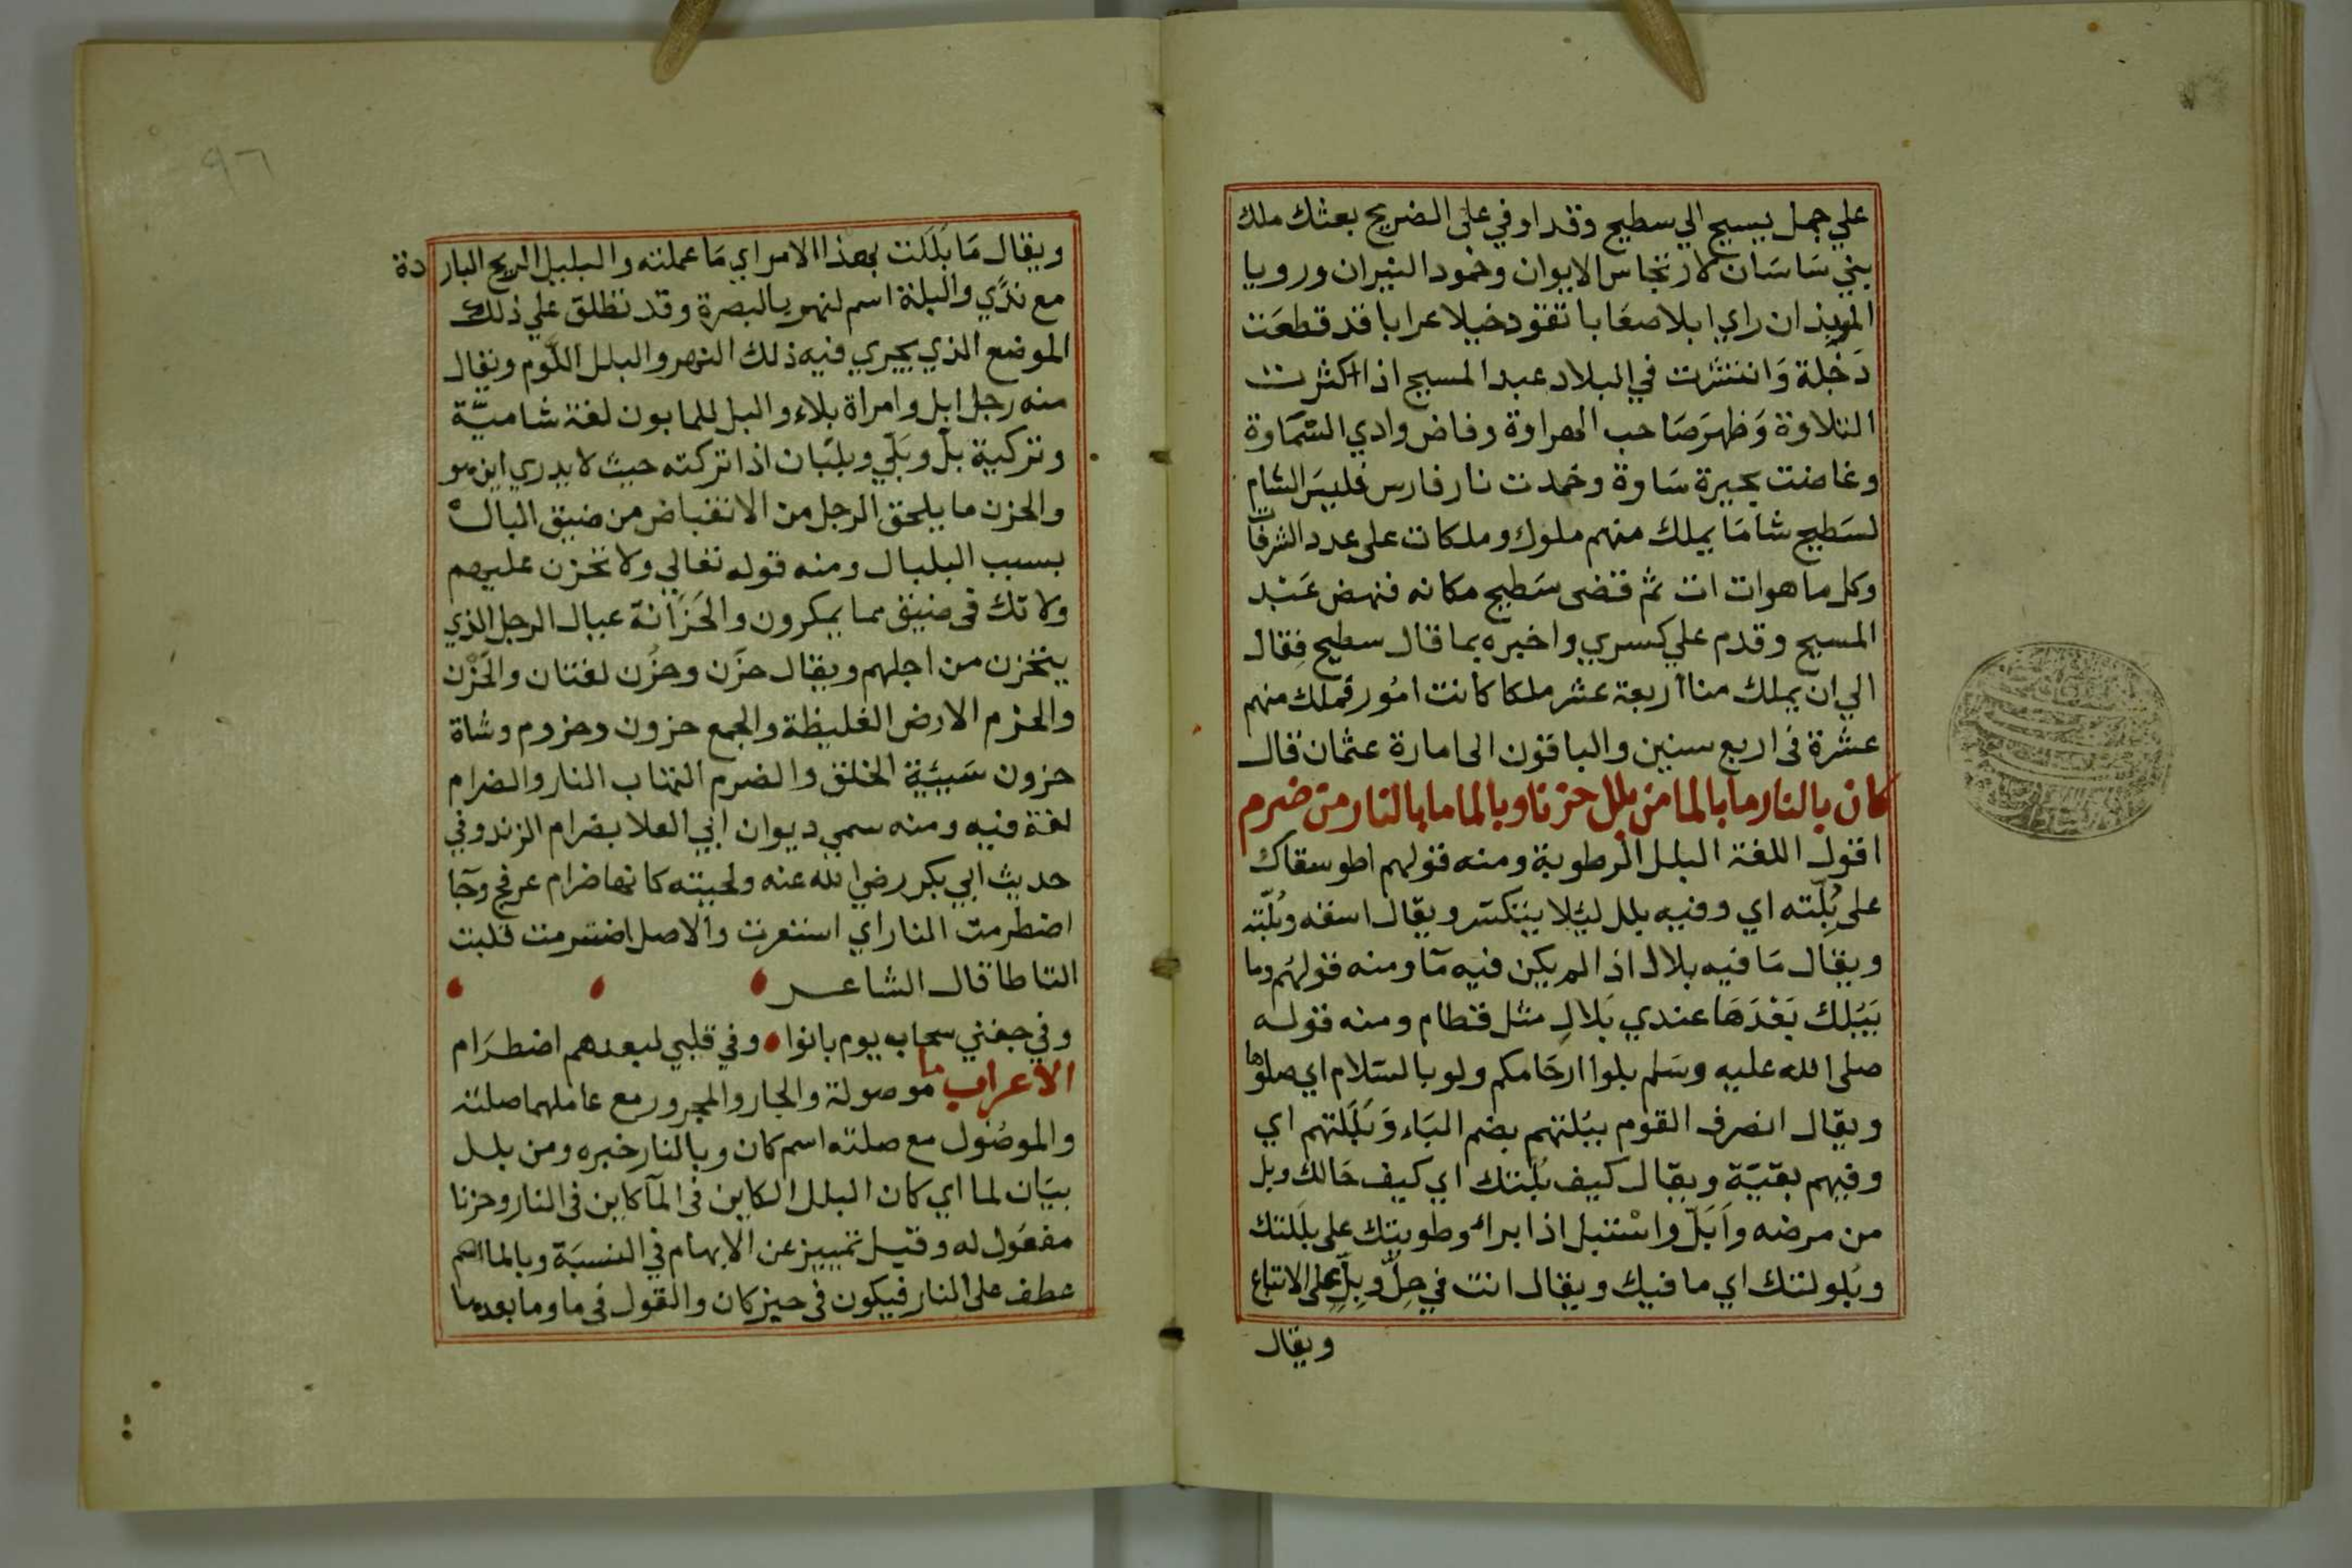 علي جمل يسيح الي سطيح وقد اوفي على الضريح بعثك ملك
بني سَاسَان لارتجاس الايوان وخمود النيران ورويا
الموبذان راي ابلا صعَابا تقود خيلا عرابا قد قطعَت
دَجْلة وَانتشرت في البلاد عبد المسيح اذا اكثرت
التلاوة وَظهرَ صَاحب الهراوة وفاض وادي السّمَاوة
وغاضت بحيرة سَاوة وخمدت نار فارس فليسَ الشام
لسَطيح شامَا يملك منهم ملوك وملكات على عدد الشرفات
وكل ما هوات ات ثم قضى سَطيح مكانه فنهض عَبد
المسيح وقدم علي كسري واخبره بما قال سطيح فقال
الي ان يملك منا اربعة عشر ملكا كانت امُور فملك منهم
عشرة فى اربع سنين والباقون الى امارة عثمان قال
كان بالنار ما بالما من بلل حزنا وبالما ما بالنار من ضرم
اقول اللغة البلل الرطوبة ومنه قولهم اطو سقاك
على بُلّته اي وفيه بلل لئلا يَنكسر ويقال اسقه وبُلّته
ويقال مَا فيه بلال اذا لم يكن فيه مآ ومنه قولهُم وما
يَبُلك بَعْدَهَا عندي بَلالِ مثل قطام ومنه قوله
صلى الله عليه وسَلم بلوا ارحَامكم ولو بالسّلام اي صلوها
ويقال انصرف القوم ببُلتهم بضم البَاء وَبَلَلتهم اي
وفيهم بقيّة ويقال كيف بُلَلتك اي كيف حَالك وبل
من مرضه وَاَبَلّ واسْتبل اذا برا وطويتك على بلَلتك
وبُلولتك اي ما فيك ويقال انت في حِلّ وبِلّ على الاتباع
ويقال
٩٦
ويقال مَا بَلَلت بهذا الامر اي مَا عملته والبليل الريح الباردة
مع نَدًي والبلة اسم لنهر بالبصرة وقد تطلق علي ذلك
الموضع الذي يجري فيه ذلك النهر والبلل اللّوم ويقال
منه رجل ابل وامراة بلاء والبل للمابون لغة شاميّة
وتركية بلّ وبَلّي وبلّيان اذا تركته حيث لا يدري اين هو
والحزن ما يلحق الرجل من الانقباض من ضيق البال
بسبب البلبال ومنه قوله تعالي ولا تحزن عليهم
ولا تك فى ضيق مما يمكرون والحَزَانة عيال الرجل الذي
يتحزن من اجلهم ويقال حزَن وحزُن لغتان والحَزْن
والحزم الارض الغليظة والجمع حزون وحزوم وشاة
حزون سَيئية الخلق والضرم التهاب النار والضرام
لغة فيه ومنه سمي ديوان ابي العلا بضرام الزند وفي
حديث ابي بكر رضي الله عنه ولحيته كانها ضرام عرفج وجَا
اضطرمت النار اي استعرت والاصل اضترمت قلبت
التا طا قال الشاعر
وفي جفني سحاب يوم بانوا وفي قلبي لبعدهم اضطرَام
الاعراب ما موصولة والجار والمجرور مع عاملهما صلته
والموصُول مع صلته اسم كان وبالنار خبره ومن بلل
بيَان لما اي كان البلل الكاين فى المآ كاين فى النار وحزنا
مفعُول له وقيل تمييز عن الابهام في النسبَة وبالما
عطف على النار فيكون فى حيز كان والقول فى ما وما بعدها